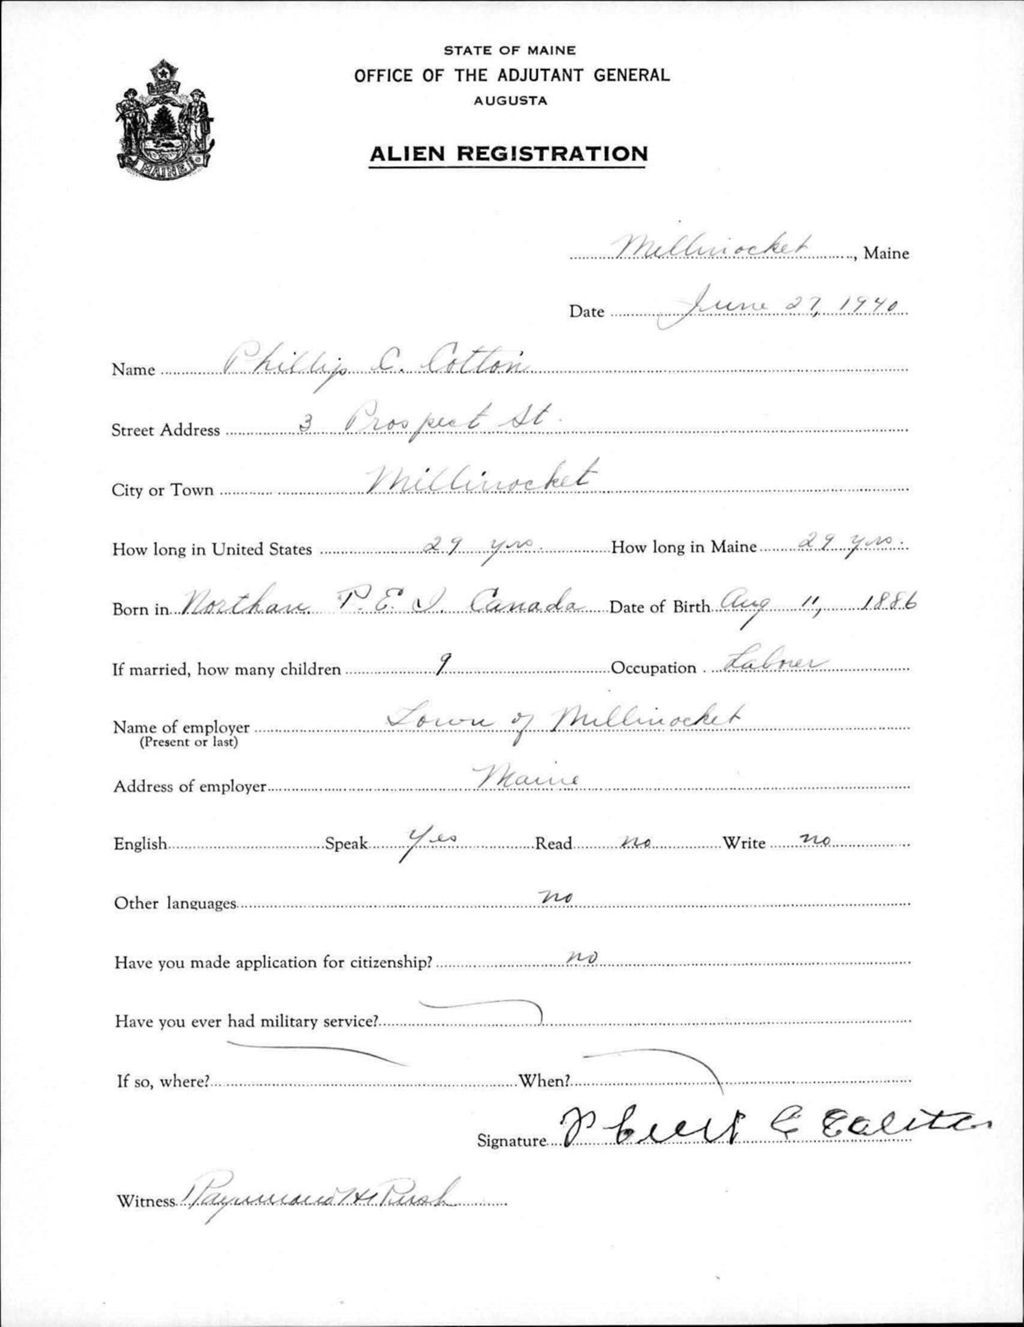 STATE OF MAINE
OFFICE OF THE ADJUTANT GENERAL
AUGUSTA
ALIEN REGISTRATION
MAINE
Millinocket, Maine
Date June 27, 1940
Name Phillip C. Cotton
Street Address 3 Prospect St.
City or Town Millinocket
How long in United States 29 yrs. How long in Maine 29 yrs.
Born in Northan P.E.I. Canada Date of Birth Aug 11, 1886
If married, how many children 9 Occupation Laborer
Name of employer Town of Millinocket
(Present or last)
Address of employer Maine
English Speak Yes Read no Write no
Other languages no
Have you made application for citizenship? no
Have you ever had military service?
If so, where? When?
Signature C
Witness Raymond H Rush